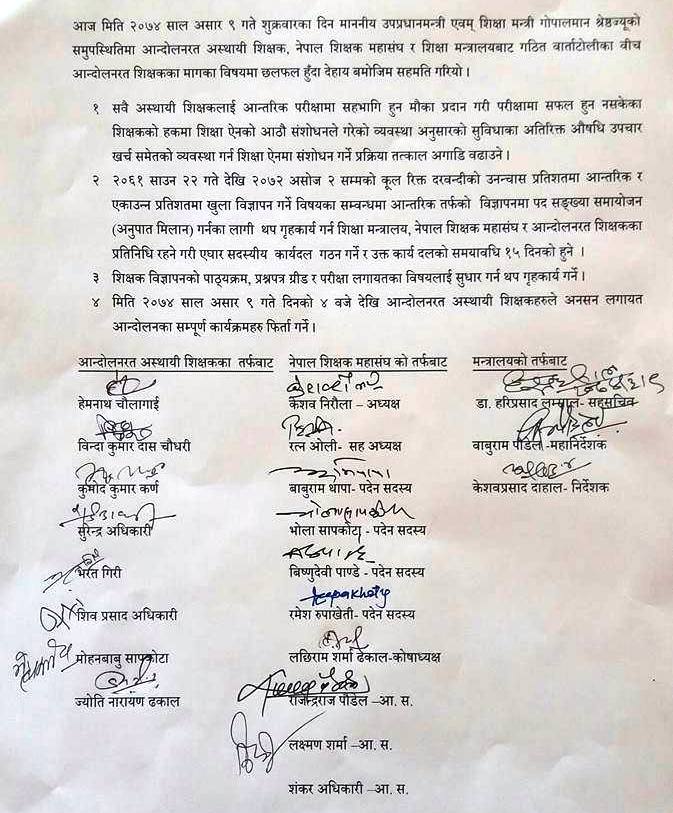 आज मिति २०७४ साल असार ९ गते शुक्रवारका दिन माननीय उपप्रधानमन्त्री एवम् शिक्षा मन्त्री गोपालमान श्रेष्ठज्यूको
समुपस्थितिमा आन्दोलनरत अस्थायी शिक्षक, नेपाल शिक्षक महासंघ र शिक्षा मन्त्रालयबाट गठित वार्ताटोलीका वीच
आन्दोलनरत शिक्षकका मागका विषयमा छलफल हुँदा देहाय बमोजिम सहमति गरियो ।
१ सवै अस्थायी शिक्षकलाई आन्तरिक परीक्षामा सहभागि हुन मौका प्रदान गरी परीक्षामा सफल हुन नसकेका
शिक्षकको हकमा शिक्षा ऐनको आठौ संशोधनले गरेको व्यवस्था अनुसारको सुविधाका अतिरिक्त औषधि उपचार
खर्च समेतको व्यवस्था गर्न शिक्षा ऐनमा संशोधन गर्ने प्रक्रिया तत्काल अगाडि वढाउने ।
२ २०६१ साउन २२ गते देखि २०७२ असोज २ सम्मको कूल रिक्त दरवन्दीको उनन्चास प्रतिशतमा आन्तरिक र
एकाउन्न प्रतिशतमा खुला विज्ञापन गर्ने विषयका सम्वन्धमा आन्तरिक तर्फको विज्ञापनमा पद सङ्ख्या समायोजन
(अनुपात मिलान) गर्नका लागी थप गृहकार्य गर्न शिक्षा मन्त्रालय, नेपाल शिक्षक महासंघ र आन्दोलनरत शिक्षकका
प्रतिनिधि रहने गरी एघार सदस्यीय कार्यदल गठन गर्ने र उक्त कार्य दलको समयावधि १५ दिनको हुने ।
३ शिक्षक विज्ञापनको पाठ्यक्रम, प्रश्नपत्र ग्रीड र परीक्षा लगायतका विषयलाई सुधार गर्न थप गृहकार्य गर्ने ।
४ मिति २०७४ साल असार ९ गते दिनको ४ वजे देखि आन्दोलनरत अस्थायी शिक्षकहरुले अनसन लगायत
आन्दोलनका सम्पूर्ण कार्यक्रमहरु फिर्ता गर्ने ।
आन्दोलनरत अस्थायी शिक्षकका तर्फवाट नेपाल शिक्षक महासंघ को तर्फबाट मन्त्रालयको तर्फबाट
हेमनाथ चौलागाई केशव निरौला – अध्यक्ष डा. हरिप्रसाद लम्साल- सहसचिव
विन्दा कुमार दास चौधरी रत्न ओली- सह अध्यक्ष बाबुराम पौडेल -महानिर्देशक
कुमोद कुमार कर्ण बाबुराम थापा- पदेन सदस्य केशवप्रसाद दाहाल- निर्देशक
सुरेन्द्र अधिकारी भोला सापकोटा - पदेन सदस्य
भरत गिरी बिष्णुदेवी पाण्डे - पदेन सदस्य
शिव प्रसाद अधिकारी रमेश रुपाखेती- पदेन सदस्य
मोहनबाबु सापकोटा लछिराम शर्मा ढकाल-कोषाध्यक्ष
ज्योति नारायण ढकाल राजेन्द्रराज पौडेल –आ. स.
लक्ष्मण शर्मा –आ. स.
शंकर अधिकारी –आ. स.